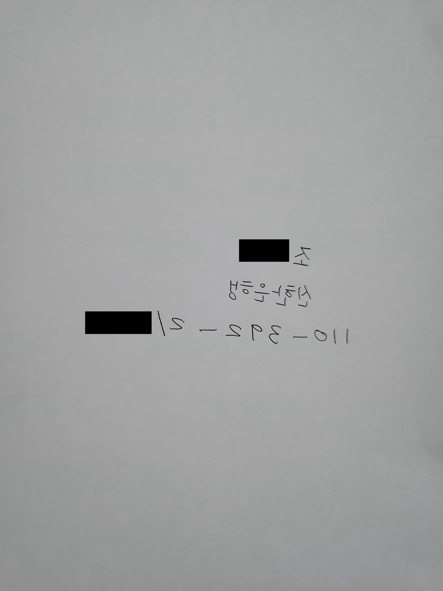 신한은행
110-392-21